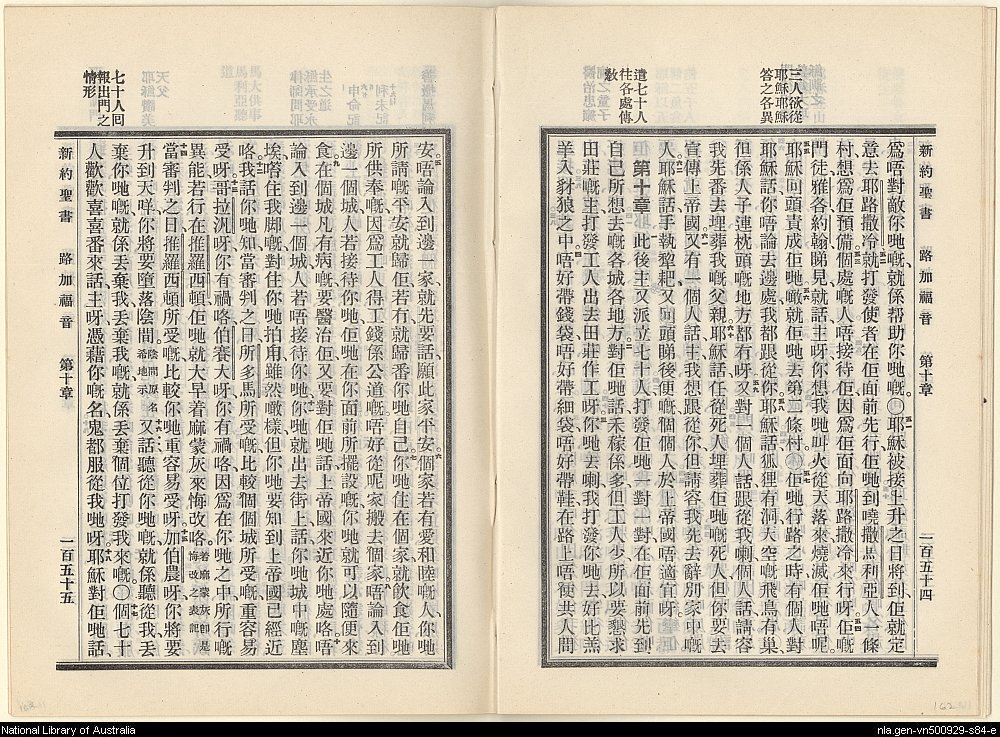 新約聖書 路加福音 第十章 一百五十四
三人欲從
耶穌耶穌
答之各異
遣七十人
往各處傳
教
為唔對敵你哋嘅就係帮助你哋嘅○耶穌被接上升之日將到佢就定
意去耶路撒冷就打發使者在佢面前先行佢哋到嘵撒馬利亞人一條
村想為佢預備個處嘅人唔接待佢因為佢面向耶路撒冷來行呀佢嘅
門徒雅各約翰睇見就話主呀你想我哋叫火從天落來燒滅佢哋唔呢
耶穌回頭責成佢哋噉就佢哋去第二條村○佢哋行路之時有個人對
耶穌話你唔論去邊處我都跟從你耶穌話狐狸有洞天空嘅飛鳥有巢
但係人子連枕頭嘅地方都冇呀又對一個人話跟從我喇個人話請容
我先番去埋葬我嘅父親耶穌話任從死人埋葬佢哋嘅死人但你要去
宣傳上帝國又有一個人話主我想跟從你但請容我先去辭別家中嘅
人耶穌話手執犂耙又回頭睇後便嘅個個人於上帝國唔適宜呀
第十章 此後主又派立七十人打發佢哋一對一對在佢面前先到
自己所想去嘅各城各地方對佢哋話禾稼係多但工人少所以要懇求
田莊嘅主打發工人出去田莊作工呀你哋去喇我打發你哋去好比羔
羊入豺狼之中唔好帶錢袋唔好帶細袋唔好帶鞋在路上唔使共人問
安唔論入到邊一家就先要話願此家平安個家若有愛和睦嘅人你哋
所請嘅平安就歸佢若冇就歸番你哋自己你哋住在個家就飲食佢哋
所供奉嘅因為工人得工錢係公道嘅唔好從呢家搬去個家唔論入到
邊一個城人若接待你哋佢哋在你面前所擺設嘅你哋就可以隨便來
食在個城凡有病嘅要醫治佢又要對佢哋話上帝國來近你哋處咯唔
論入到邊一個城人若唔接待你哋你哋就出去街上話你哋城中嘅塵
埃嗒住我脚嘅對住你哋拍甪雖然噉樣但你哋要知到上帝國已經近
咯我話你哋知當審判之日所多馬所受嘅比較個個城所受嘅重容易
受呀哥拉汛呀你有禍咯伯賽大呀你有禍咯因為在你哋之中所行嘅
異能若行在推羅西頓佢哋就大早着麻蒙灰來悔改咯
當審判之日推羅西頓所受嘅比較你哋重容易受呀加伯農呀你將要
升到天咩你將要墮落陰間又話聽從你哋嘅就係聽從我丟
棄你哋嘅就係丟棄我丟棄我嘅就係丟棄個位打發我來嘅○個七十
人歡歡喜喜番來話主呀憑藉你嘅名鬼都服從我哋呀耶穌對佢哋話
七十人回
報出門之
情形
新約聖書 路加福音 第十章 一百五十五
National Library of Australia
nla.gen-vn500929-s84-e